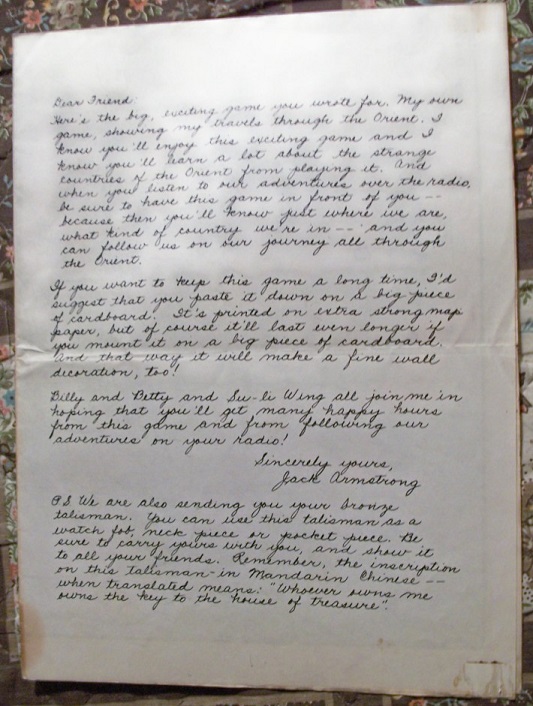 Dear Friend:
Here's the big, exciting game you wrote for. My own
game, showing my travels through the Orient. I
know you'll enjoy this exciting game and I
know you'll learn a lot about the strange
countries of the Orient from playing it. And
when you listen to our adventures over the radio,
be sure to have this game in front of you --
because then you'll know just where we are,
what kind of country we're in -- and you
can follow us on our journey all through
the Orient.
If you want to keep this game a long time, I'd
suggest that you paste it down on a big piece
of cardboard. It's printed on extra strong map
paper, but of course it'll last even longer if
you mount it on a big piece of cardboard.
And that way it will make a fine wall
decoration, too!
Billy and Betty and Su-li Wing all join me in
hoping that you'll get many happy hours
from this game and from following our
adventures on your radio!
Sincerely yours,
Jack Armstrong
P.S. We are also sending you your bronze
talisman. You can use this talisman as a
watch fob, neck piece or pocket piece. Be
sure to carry yours with you, and show it
to all your friends. Remember, the inscription
on this talisman - in Mandarin Chinese --
when translated means: "Whoever owns me
owns the key to the house of treasure".